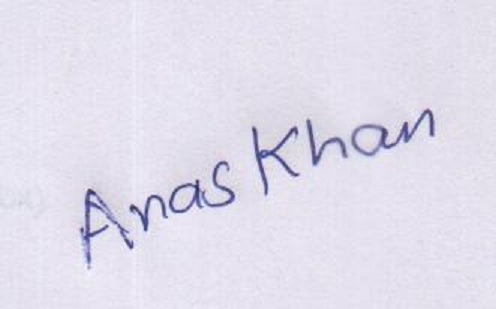 Anas Khan